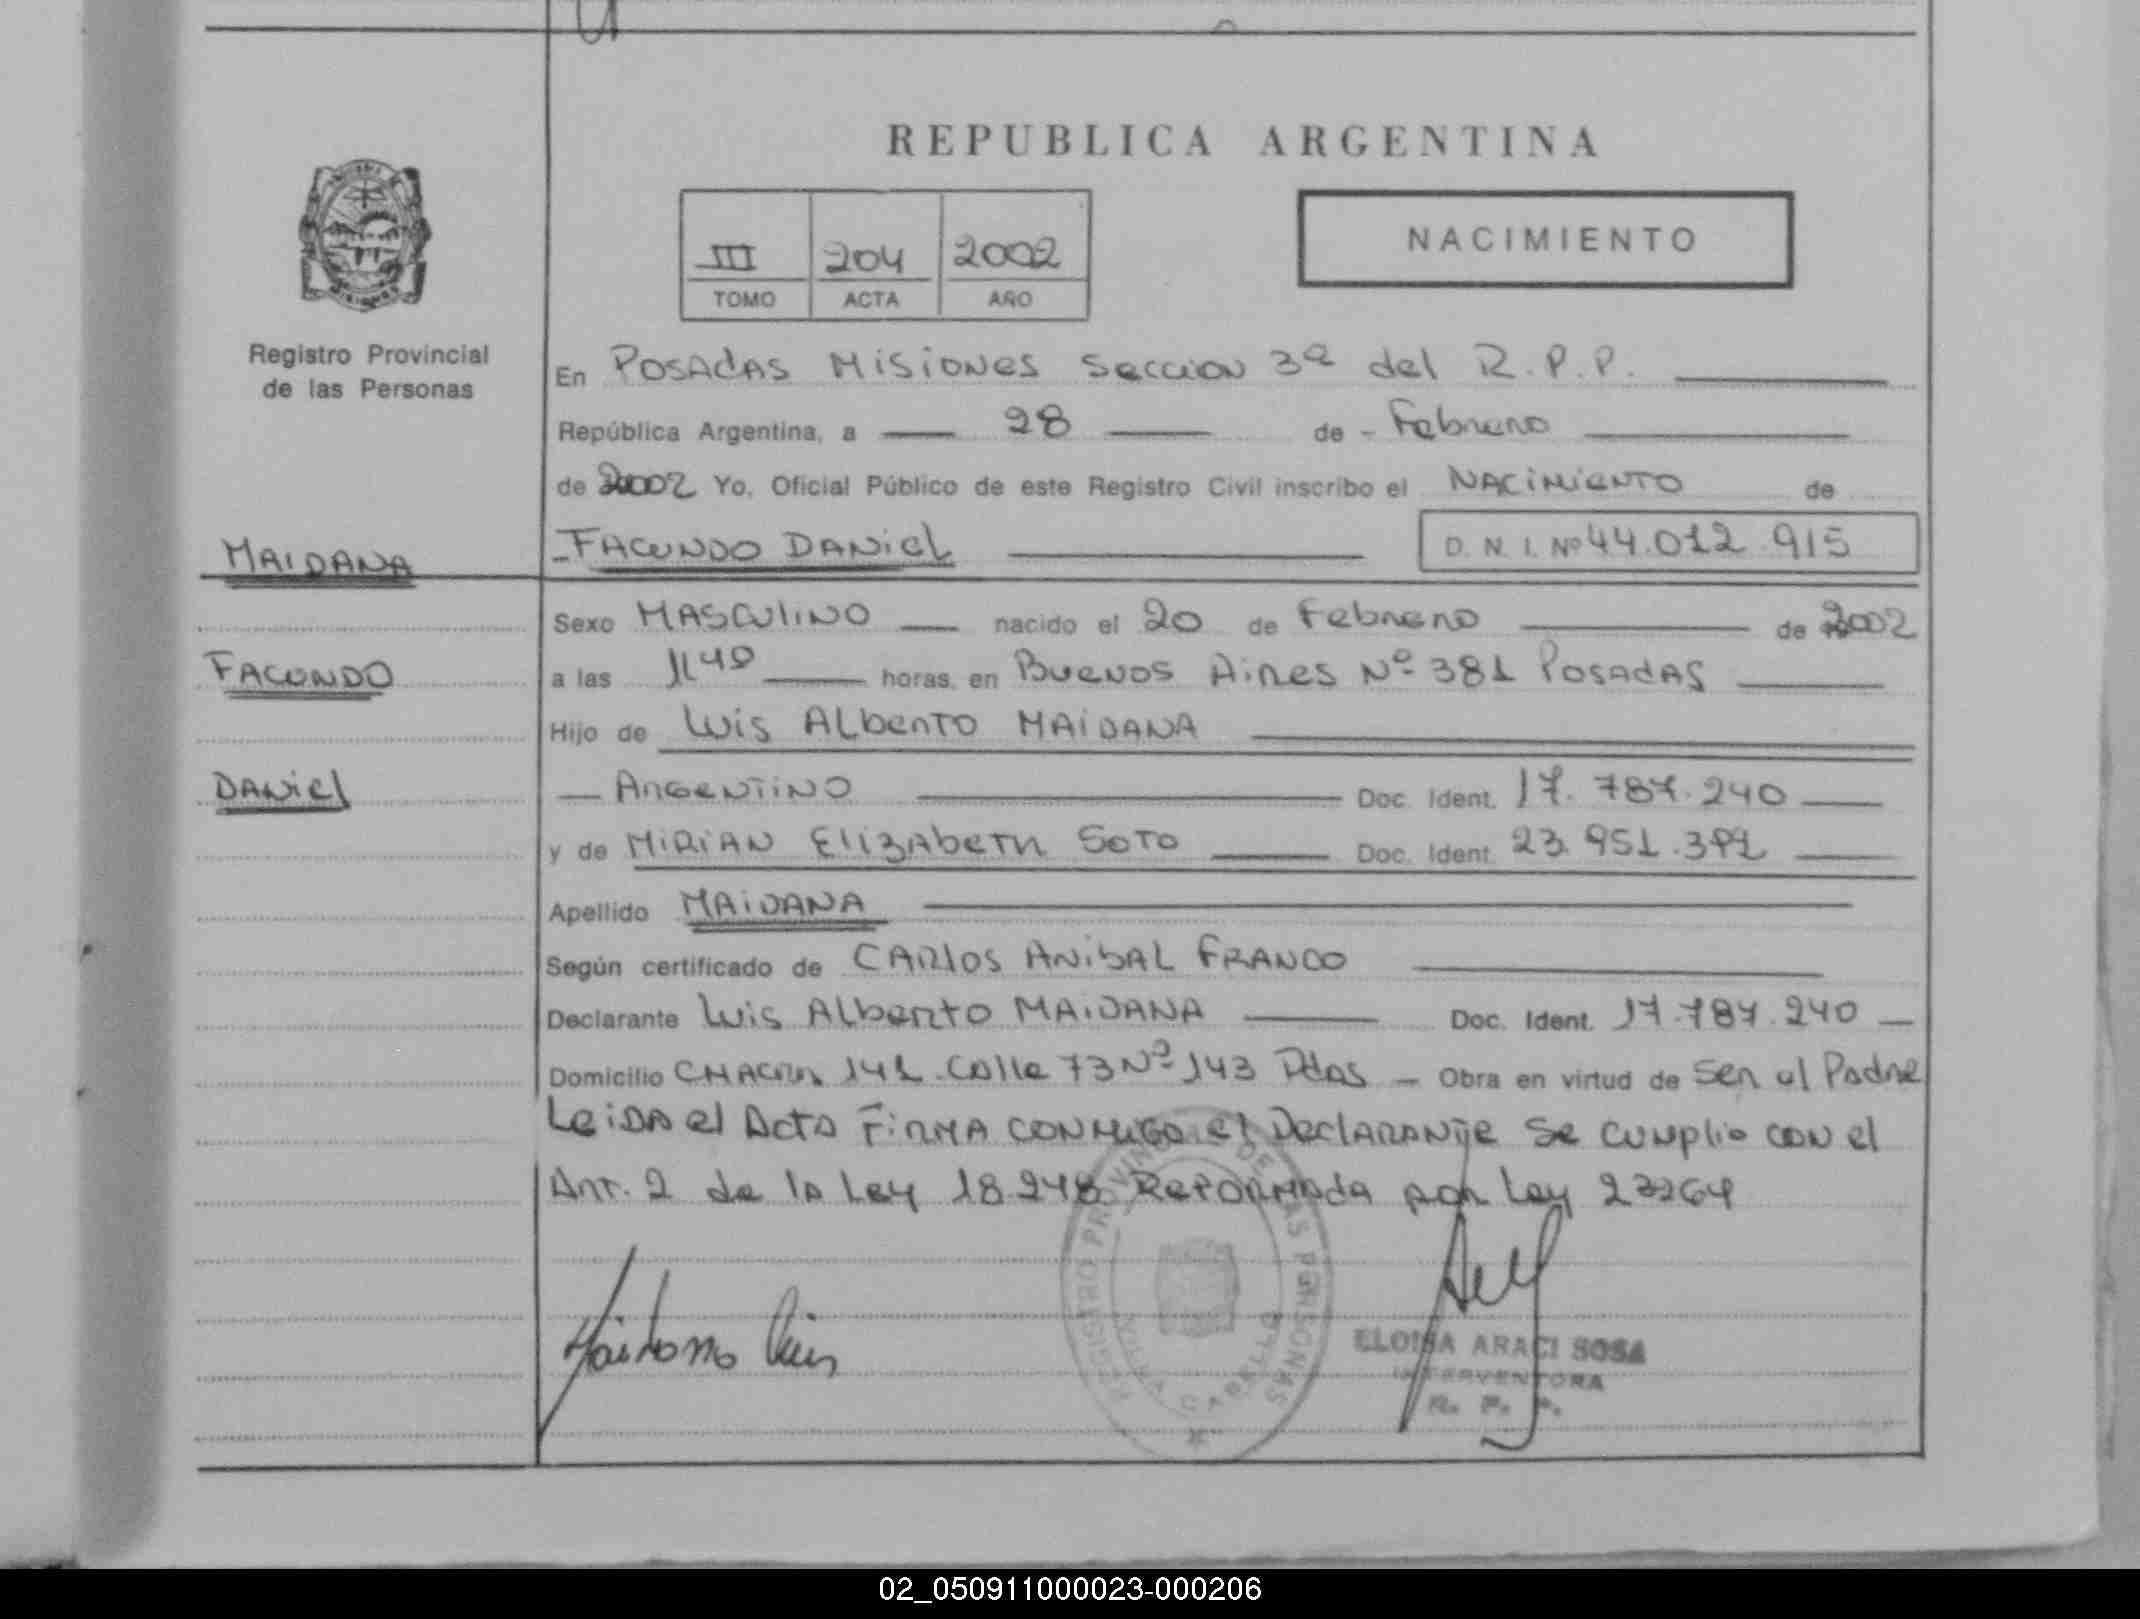 REPUBLICA ARGENTINA
III 204 2002
TOMO ACTA AÑO
NACIMIENTO
Registro Provincial
de las Personas
En Posadas Misiones Seccion 3ª del R.P.P.
República Argentina, a 28 de Febrero
de 2002 Yo, Oficial Público de este Registro Civil inscribo el Nacimiento de
MAIDANA
FACUNDO DANIEL D. N. I. Nº 44.012.915
Sexo MASCULINO nacido el 20 de Febrero de 2002
FACUNDO
a las 1140 horas, en Buenos Aires Nº 381 Posadas
Hijo de Luis Alberto MAIDANA
DANIEL
Argentino Doc. Ident. 17.787.240
y de Mirian Elizabeth Soto Doc. Ident. 23.951.392
Apellido MAIDANA
Según certificado de Carlos Anibal Franco
Declarante Luis Alberto MAIDANA Doc. Ident. 17.787.240
Domicilio Chacra 141 Calle 73 Nº 143 Pdas Obra en virtud de Ser el Padre
Leida el Acta Firma conmigo el Declarante Se cumplio con el
Art. 2 de la Ley 18.248 Reformada por Ley 23264
Maidana Luis
REGISTRO PROVINCIAL DE LAS PERSONAS
VILLA CABELLO
ELOISA ARACI SOSA
INTERVENTORA
R. P. P.
02_050911000023-000206